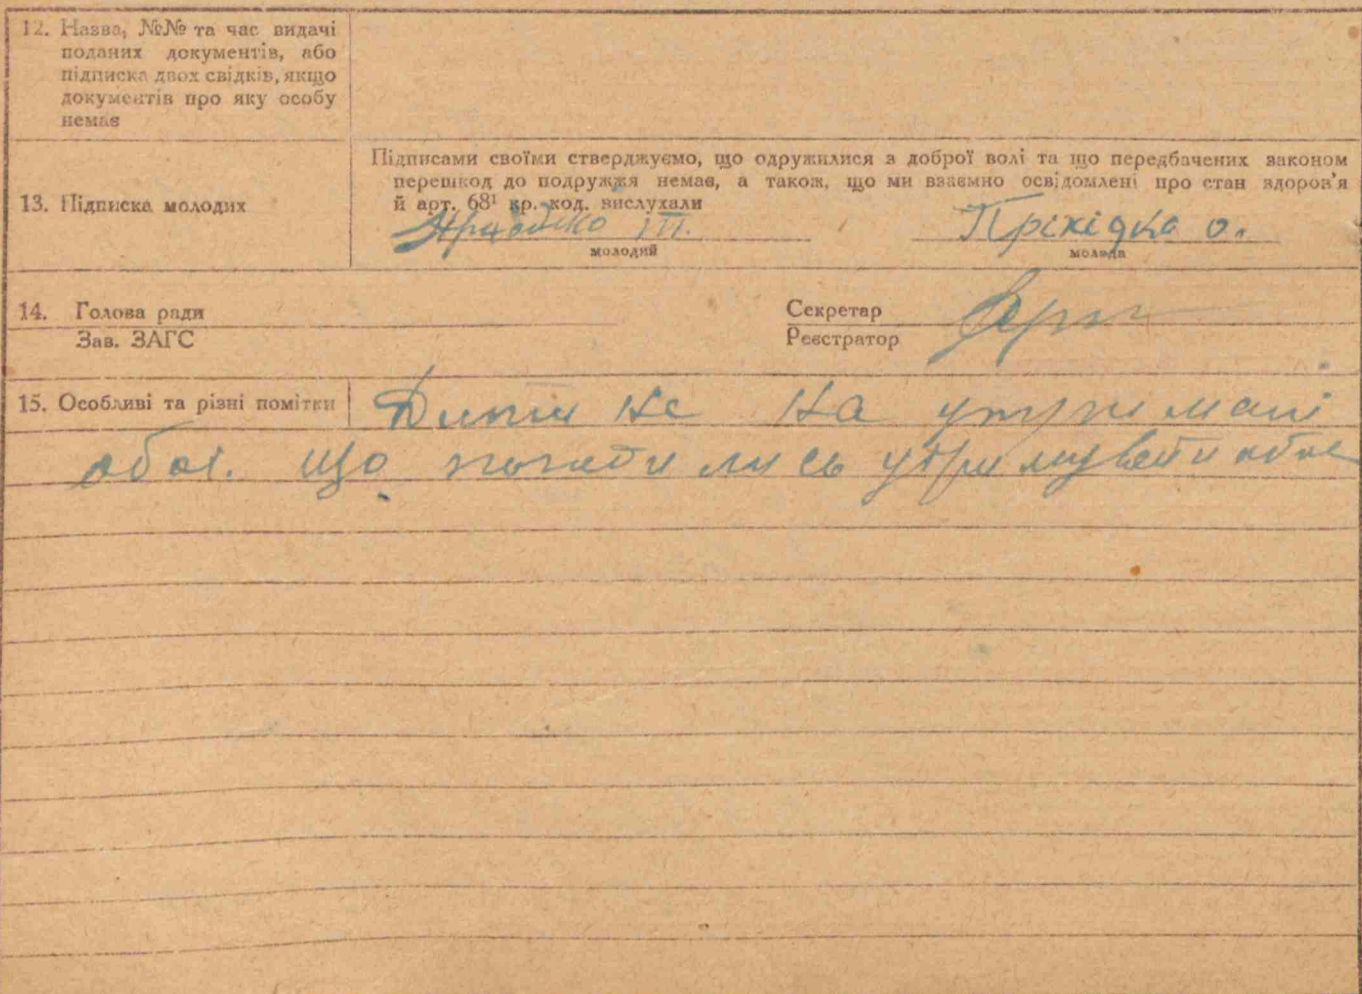 12. Назва, №№ та час видачі
поданих документів, або
підписка двох свідків, якщо
документів про яку особу
немає
13. Підписка молодих
Підписами своїми стверджуємо, що одружилися з доброї волі та що передбачених законом
перешкод до подружжя немає, а також, що ми взаємно освідомлені про стан здоров'я
й арт. 68¹ кр. код. вислухали
Пріхідка о.
молодий
молода
14. Голова ради
Зав. ЗАГС
Секретар
Реєстратор
15. Особливі та різні помітки
на утримані
обоє. що погодились утримувати обоє